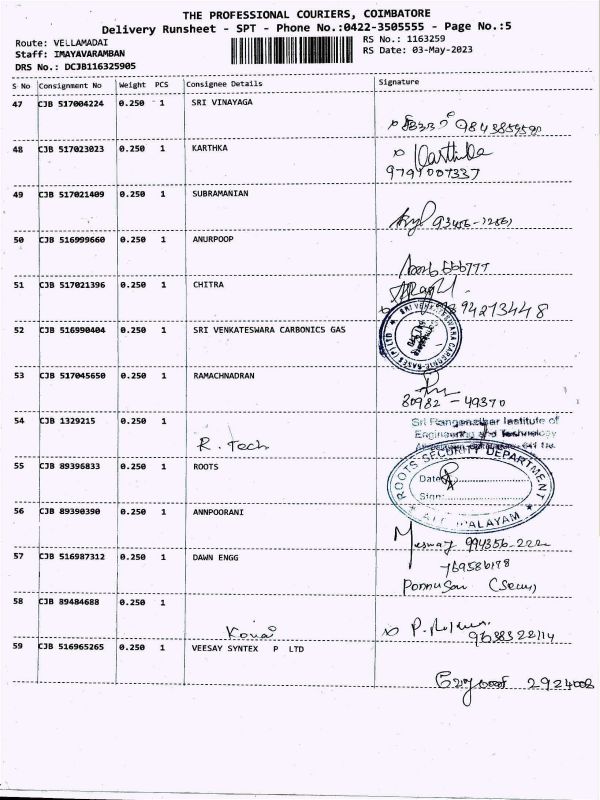 THE PROFESSIONAL COURIERS, COIMBATORE
Delivery Runsheet - SPT - Phone No.:0422-3505555 - Page No.:5
Route: VELLAMADAI
RS No.: 1163259
Staff: IMAYAVARAMBAN
RS Date: 03-May-2023
DRS No.: DCJB116325905
S No Consignment No Weight PCS Consignee Details Signature
47 CJB 517004224 0.250 1 SRI VINAYAGA
48 CJB 517023023 0.250 1 KARTHKA
Karthika
9791007337
49 CJB 517021409 0.250 1 SUBRAMANIAN
50 CJB 516999660 0.250 1 ANURPOOP
51 CJB 517021396 0.250 1 CHITRA
94213448
52 CJB 516990404 0.250 1 SRI VENKATESWARA CARBONICS GAS
SRI VENKATESWARA CARBONIC GASES (P) LTD
53 CJB 517045650 0.250 1 RAMACHNADRAN
80982 - 49370
54 CJB 1329215 0.250 1
R. Tech
Sri Ranganathar Institute of
Engineering and Technology
55 CJB 89396833 0.250 1 ROOTS
ROOTS SECURITY DEPARTMENT
Date
Sign
56 CJB 89390390 0.250 1 ANNPOORANI
994356-222
57 CJB 516987312 0.250 1 DAWN ENGG
Ponnusai
58 CJB 89484688 0.250 1
Kovai
59 CJB 516965265 0.250 1 VEESAY SYNTEX P LTD
2924008